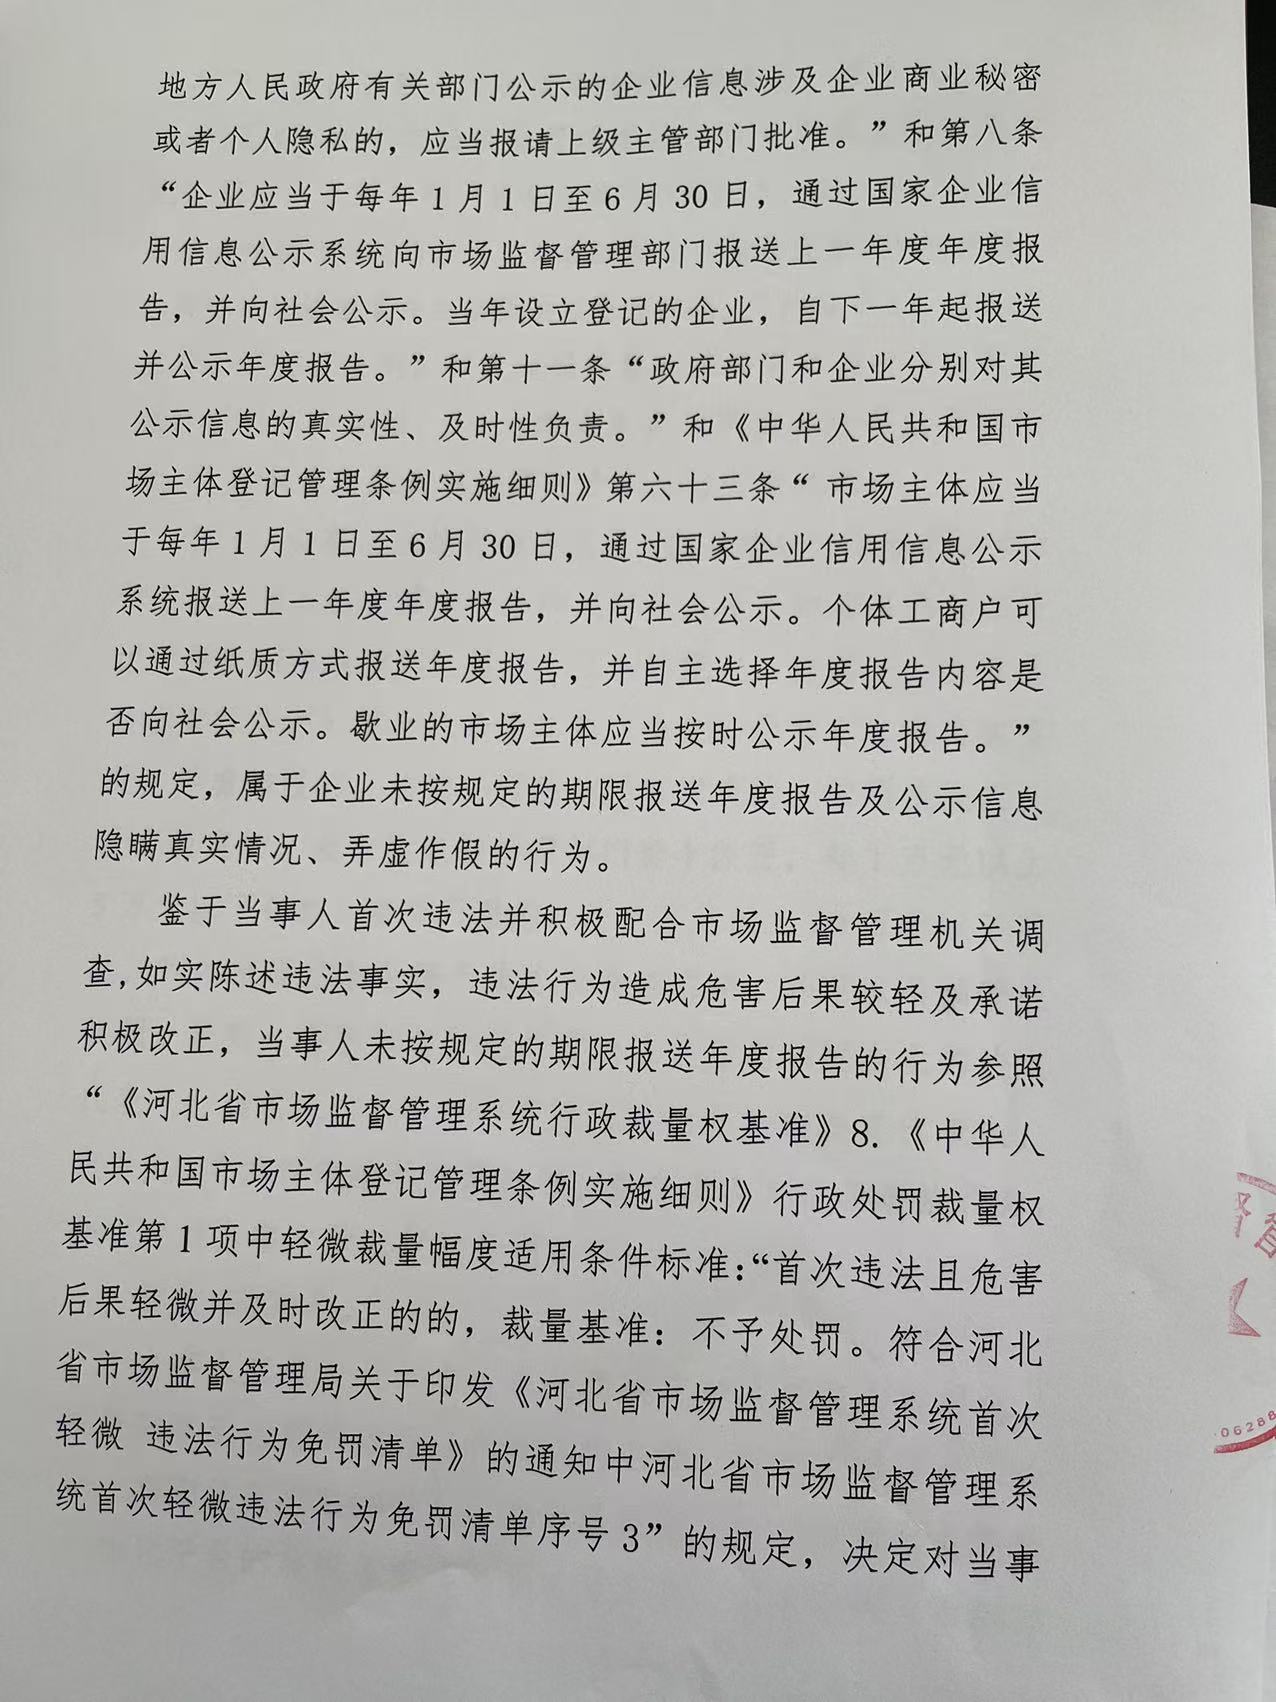 地方人民政府有关部门公示的企业信息涉及企业商业秘密
或者个人隐私的，应当报请上级主管部门批准。”和第八条
“企业应当于每年1月1日至6月30日，通过国家企业信
用信息公示系统向市场监督管理部门报送上一年度年度报
告，并向社会公示。当年设立登记的企业，自下一年起报送
并公示年度报告。”和第十一条“政府部门和企业分别对其
公示信息的真实性、及时性负责。”和《中华人民共和国市
场主体登记管理条例实施细则》第六十三条“ 市场主体应当
于每年1月1日至6月30日，通过国家企业信用信息公示
系统报送上一年度年度报告，并向社会公示。个体工商户可
以通过纸质方式报送年度报告，并自主选择年度报告内容是
否向社会公示。歇业的市场主体应当按时公示年度报告。”
的规定，属于企业未按规定的期限报送年度报告及公示信息
隐瞒真实情况、弄虚作假的行为。
鉴于当事人首次违法并积极配合市场监督管理机关调
查,如实陈述违法事实，违法行为造成危害后果较轻及承诺
积极改正，当事人未按规定的期限报送年度报告的行为参照
“《河北省市场监督管理系统行政裁量权基准》8.《中华人
民共和国市场主体登记管理条例实施细则》行政处罚裁量权
基准第1项中轻微裁量幅度适用条件标准:“首次违法且危害
后果轻微并及时改正的的，裁量基准：不予处罚。符合河北
省市场监督管理局关于印发《河北省市场监督管理系统首次
轻微 违法行为免罚清单》的通知中河北省市场监督管理系
统首次轻微违法行为免罚清单序号3”的规定，决定对当事
督管
06288